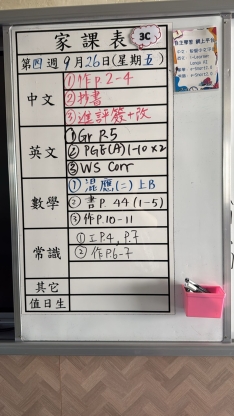 家課表 3C
第四週 9月26日(星期五)
中文
①作P.2-4
②抄書
③進評簽+改
英文
①Gr R5
②PGE(A)1-10 x2
③WS Corr
數學
①混應(二)上B
②書P.44(1-5)
③作P.10-11
常識
①工P.4, P.7
②作P.6-7
其它
值日生